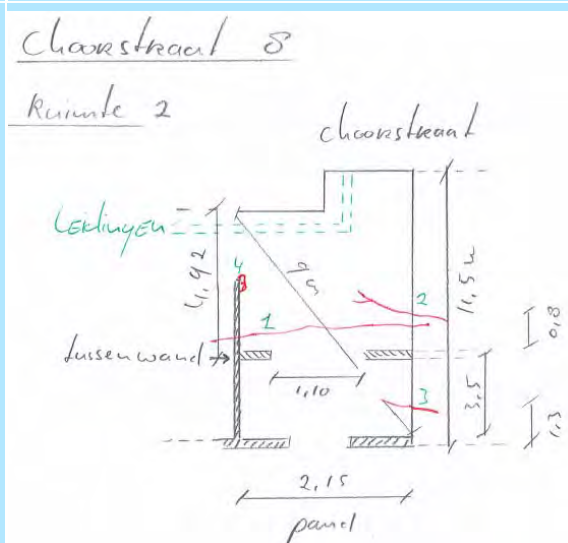 Choorstraat 8
Ruimte 2
choorstraat
Leidingen
4,92
4
3
1
2
tussenwand
1,10
3
3,5
0,8
1,3
2,15
pand